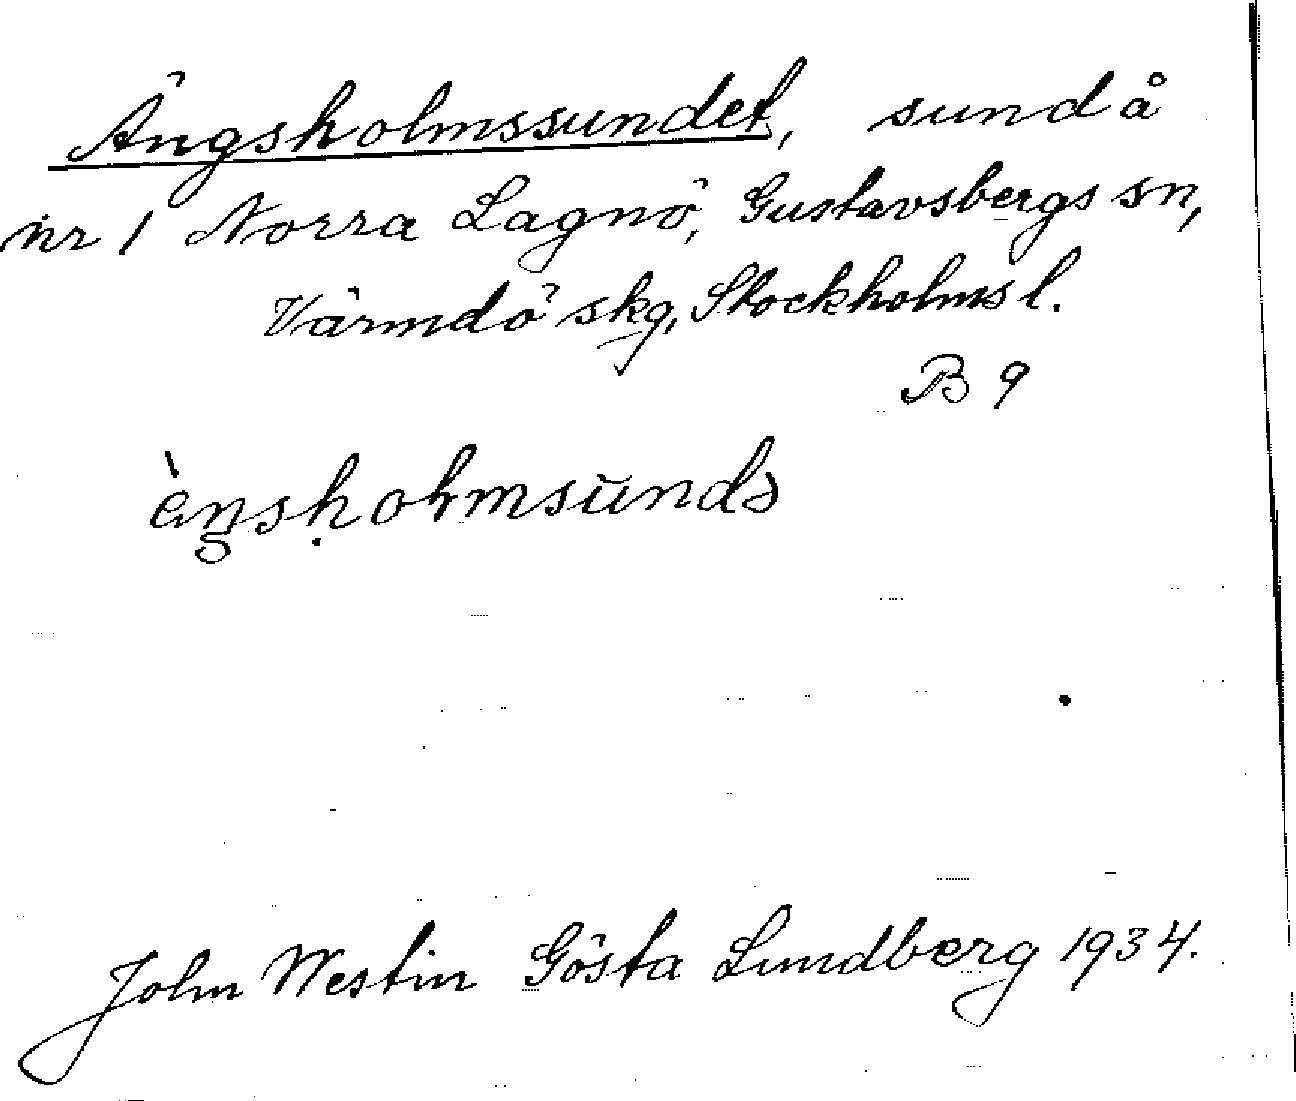 Ängsholmssundet, sund å
nr 1 Norra Lagnö, Gustavsbergs sn,
Värmdö skg, Stockholms l.
B 9
John Westin Gösta Lundberg 1934.